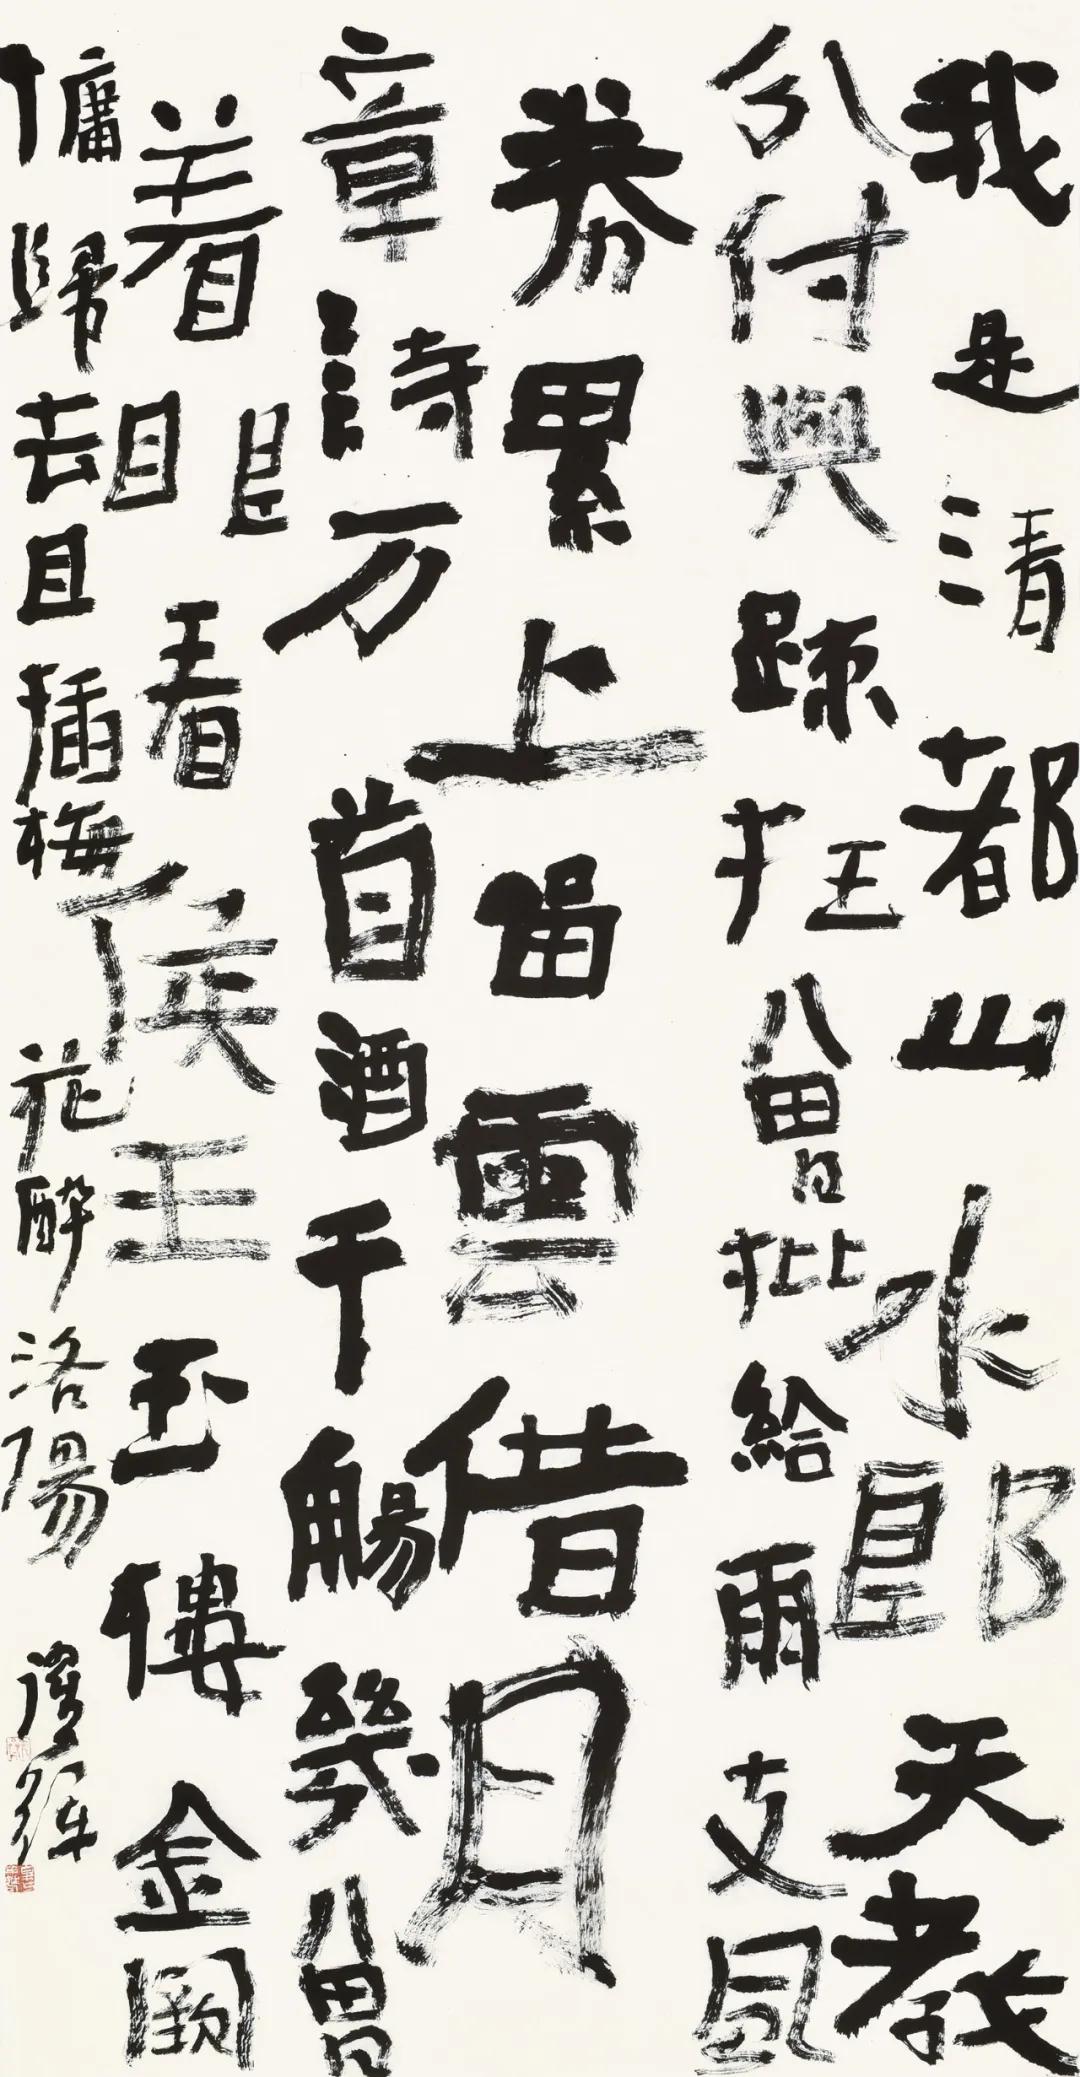 我是清都山水郎天教
分付與踈狂曾批給雨支風
券累上留雲借月
章詩万首酒千觴幾曾
着眼看侯王玉樓金闕
慵歸去且插梅花醉洛陽